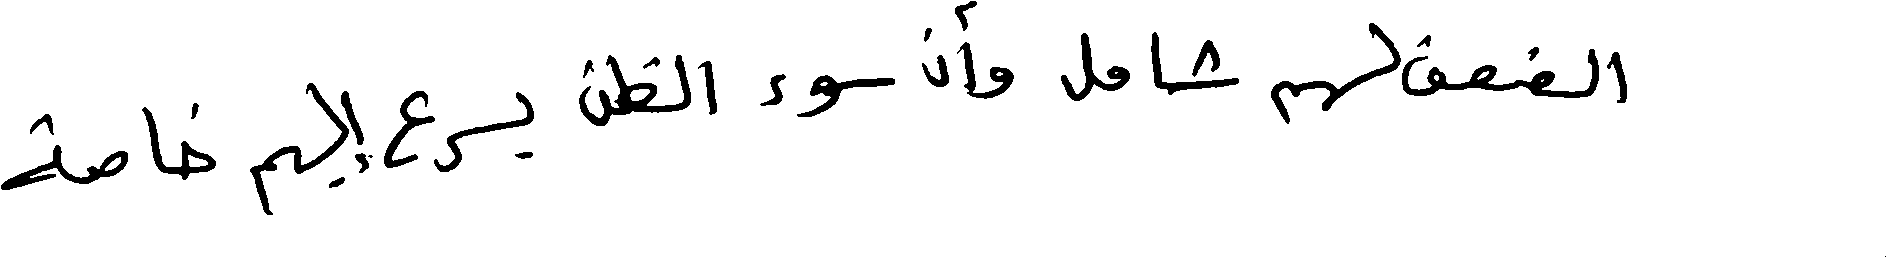 الضعف لهم شامل وأن سوء الظن يسرع إليهم خاصة